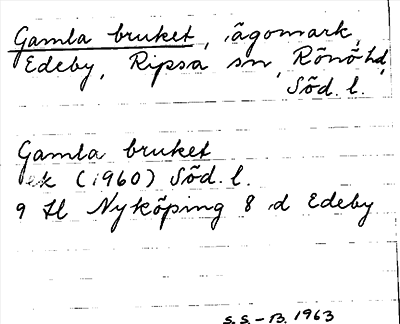 Gamla bruket, ägomark,
Edeby, Ripsa sn, Rönö hd,
Söd. l.
Gamla bruket
ek (1960) Söd. l.
9 H Nyköping 8 d Edeby
S.S. - B. 1963